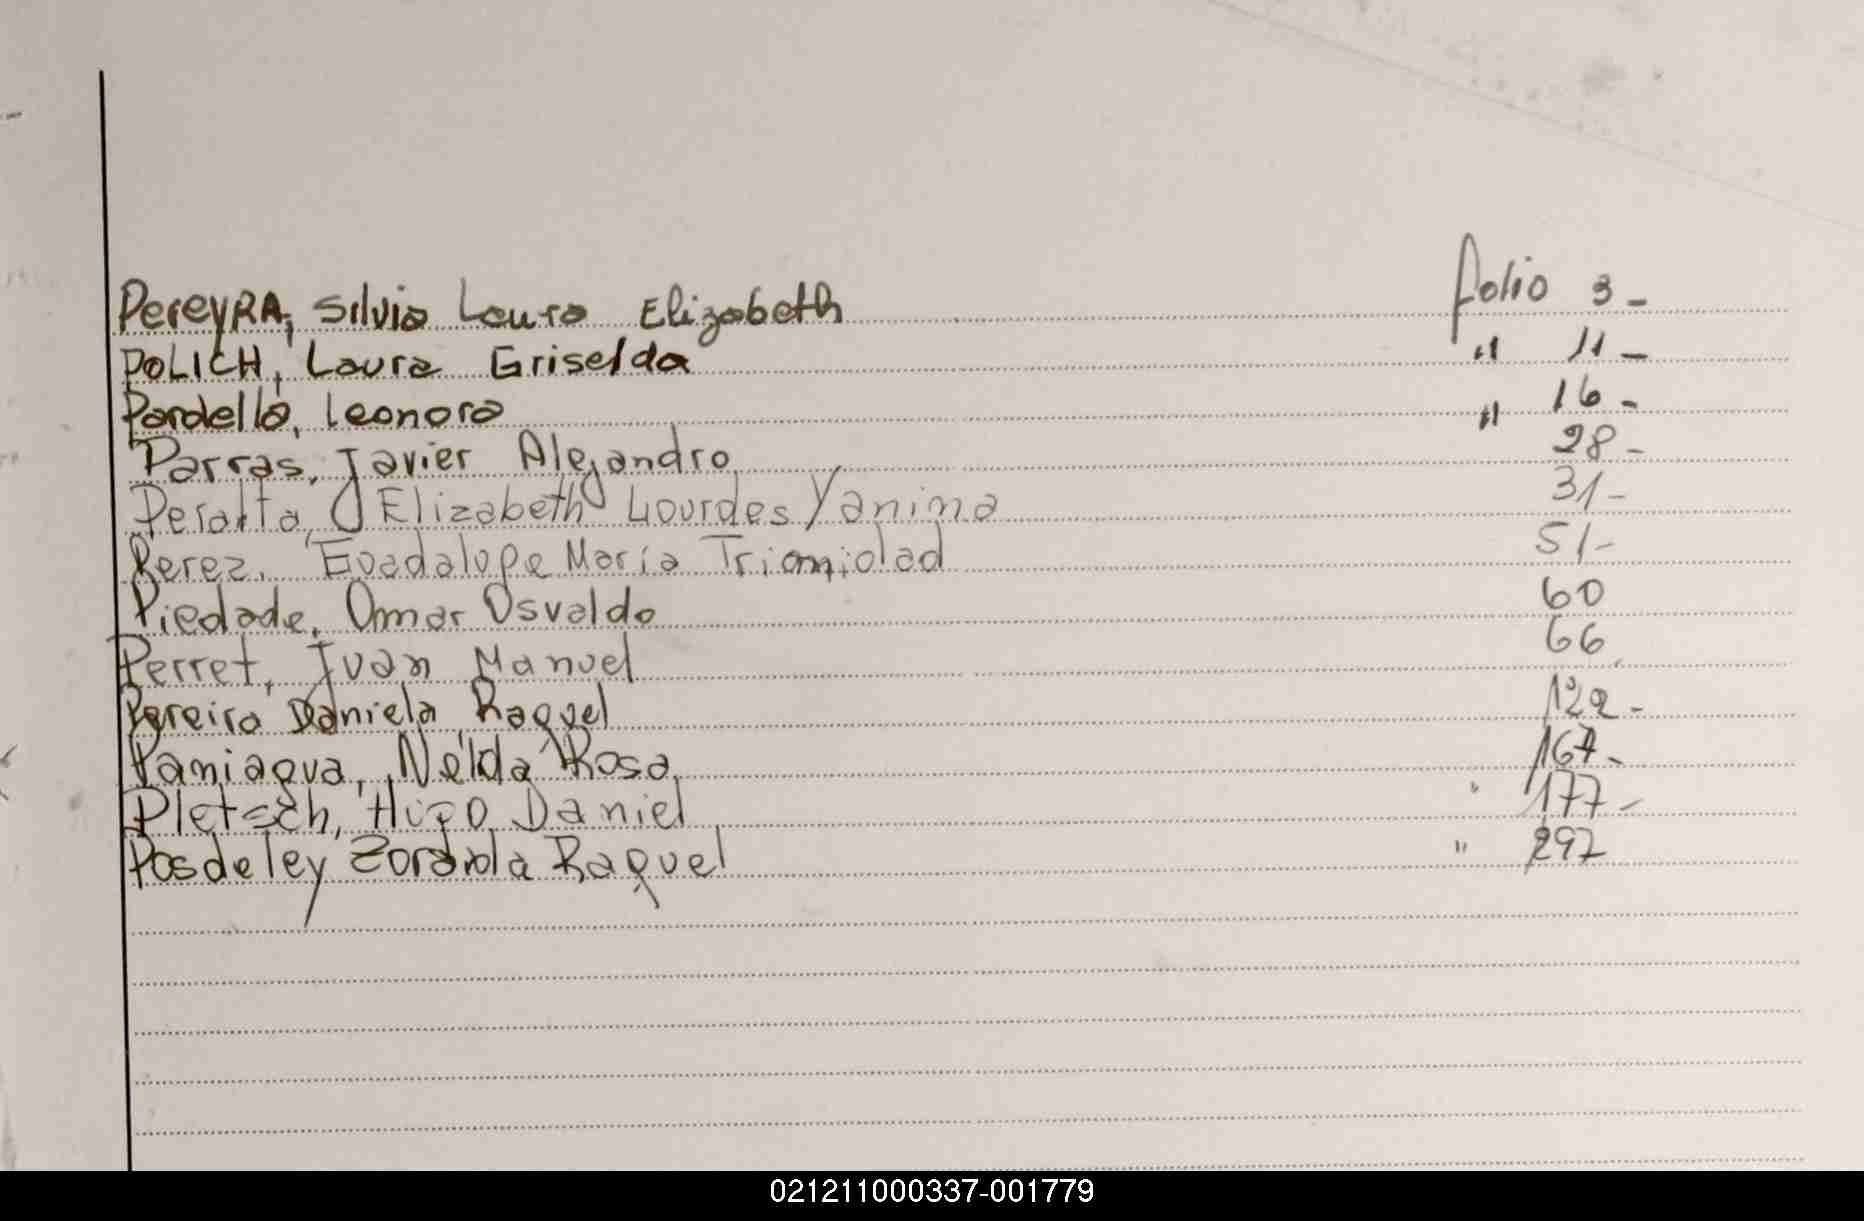 PereyRA, Silvia Laura Elizabeth folio 3-
POLICH, Laura Griselda " 11-
Pardella, Leonora " 16-
Parras, Javier Alejandro 28-
Peralta, Elizabeth Lourdes Yanina 31-
Perez, Guadalupe María 51-
Piedade, Omar Osvaldo 60
Perret, Juan Manuel 66
Pereira Daniela Raquel 122-
Paniagua, Nélida Rosa 167-
Pletsch, Hugo Daniel " 177-
Posdeley Raquel " 297
021211000337-001779